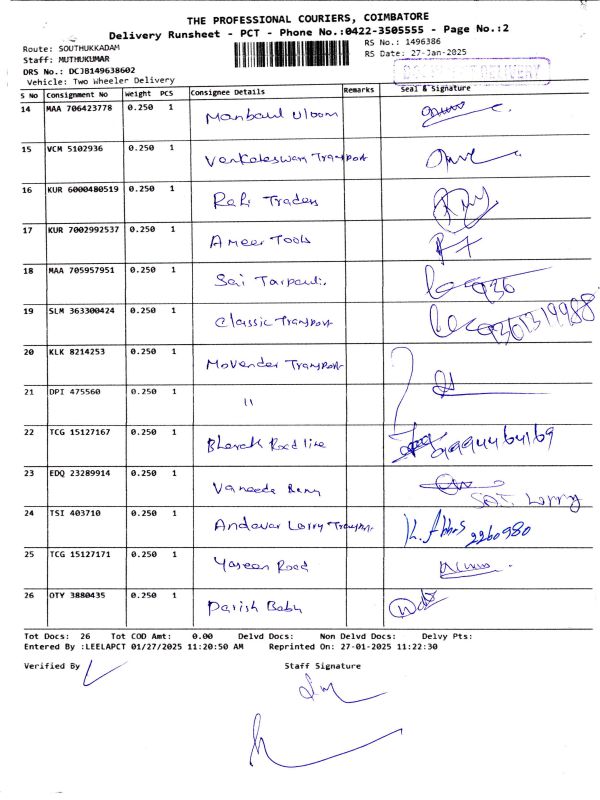 THE PROFESSIONAL COURIERS, COIMBATORE
Delivery Runsheet - PCT - Phone No.:0422-3505555 - Page No.:2
Route: SOUTHUKKADAM
RS No.: 1496386
Staff: MUTHUKUMAR
RS Date: 27-Jan-2025
DRS No.: DCJB149638602
Vehicle: Two Wheeler Delivery
DELIVERY
S No Consignment No Weight PCS Consignee Details Remarks Seal & Signature
14 MAA 706423778 0.250 1 Manbaul Uloom
15 VCM 5102936 0.250 1 Venkateswara Transport
16 KUR 6000480519 0.250 1 Traders
17 KUR 7002992537 0.250 1 Ameer Tools
18 MAA 705957951 0.250 1 Sai 936
19 SLM 363300424 0.250 1 Classic Transport
20 KLK 8214253 0.250 1 Movender Transport
21 DPI 475560 0.250 1 "
22 TCG 15127167 0.250 1 Road line
23 EDQ 23289914 0.250 1 Vaneeda S.A.T. Lorry
24 TSI 403710 0.250 1 Andavar Lorry Transport K. Abbas 2260980
25 TCG 15127171 0.250 1 Yaseen Road
26 OTY 3880435 0.250 1 Parish Babu
Tot Docs: 26 Tot COD Amt: 0.00 Delvd Docs: Non Delvd Docs: Delvy Pts:
Entered By :LEELAPCT 01/27/2025 11:20:50 AM Reprinted On: 27-01-2025 11:22:30
Verified By Staff Signature